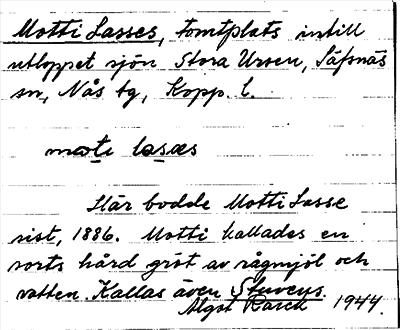 Motti Lasses, tomtplats intill
utloppet sjön Stora Ursen, Säfsnäs
sn, Nås tg, Kopp. l.
moti lasæs
Här bodde Motti Lasse
sist, 1886. Motti kallades en
sorts hård gröt av rågmjöl och
vatten. Kallas även Stuveys.
Algot Rasck 1944.